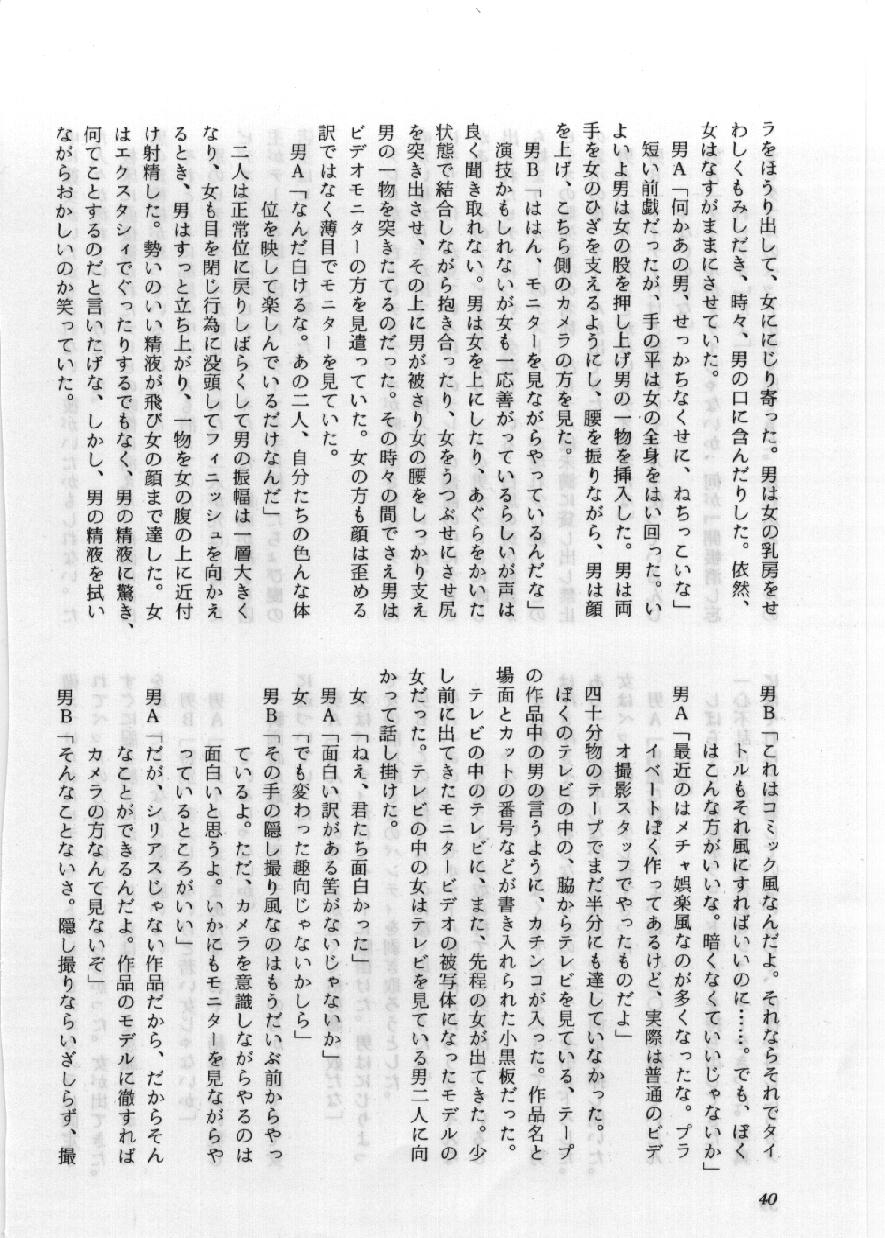 ラをほうり出して、女ににじり寄った。男は女の乳房をせ
わしくもみしだき、時々、男の口に含んだりした。依然、
女はなすがままにさせていた。
男A「何かあの男、せっかちなくせに、ねちっこいな」
短い前戯だったが、手の平は女の全身をはい回った。い
よいよ男は女の股を押し上げ男の一物を挿入した。男は両
手を女のひざを支えるようにし、腰を振りながら、男は顔
を上げ、こちら側のカメラの方を見た。
男B「ははん、モニターを見ながらやっているんだな」
演技かもしれないが女も一応善がっているらしいが声は
良く聞き取れない。男は女を上にしたり、あぐらをかいた
状態で結合しながら抱き合ったり、女をうつぶせにさせ尻
を突き出させ、その上に男が被さり女の腰をしっかり支え
男の一物を突きたてるのだった。その時々の間でさえ男は
ビデオモニターの方を見遣っていた。女の方も顔は歪める
訳ではなく薄目でモニターを見ていた。
男A「なんだ白けるな。あの二人、自分たちの色んな体
位を映して楽しんでいるだけなんだ」
二人は正常位に戻りしばらくして男の振幅は一層大きく
なり、女も目を閉じ行為に没頭してフィニッシュを向かえ
るとき、男はすっと立ち上がり、一物を女の腹の上に近付
け射精した。勢いのいい精液が飛び女の顔まで達した。女
はエクスタシィでぐったりするでもなく、男の精液に驚き、
何てことするのだと言いたげな、しかし、男の精液を拭い
ながらおかしいのか笑っていた。
男B「これはコミック風なんだよ。それならそれでタイ
トルもそれ風にすればいいのに……。でも、ぼく
はこんな方がいいな。暗くなくていいじゃないか」
男A「最近のはメチャ娯楽風なのが多くなったな。プラ
イベートぽく作ってあるけど、実際は普通のビデ
オ撮影スタッフでやったものだよ」
四十分物のテープでまだ半分にも達していなかった。
ぼくのテレビの中の、脇からテレビを見ている、テープ
の作品中の男の言うように、カチンコが入った。作品名と
場面とカットの番号などが書き入れられた小黒板だった。
テレビの中のテレビに、また、先程の女が出てきた。少
し前に出てきたモニタービデオの被写体になったモデルの
女だった。テレビの中の女はテレビを見ている男二人に向
かって話し掛けた。
女「ねえ、君たち面白かった」
男A「面白い訳がある筈がないじゃないか」
女「でも変わった趣向じゃないかしら」
男B「その手の隠し撮り風なのはもうだいぶ前からやっ
ているよ。ただ、カメラを意識しながらやるのは
面白いと思うよ。いかにもモニターを見ながらや
っているところがいい」
男A「だが、シリアスじゃない作品だから、だからそん
なことができるんだよ。作品のモデルに徹すれば
カメラの方なんて見ないぞ」
男B「そんなことないさ。隠し撮りならいざしらず、撮
40